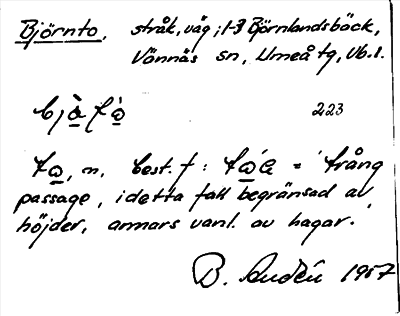 Björnto, stråk, väg; 1-3 Björnlandsbäck,
Vännäs sn, Umeå tg, Vb.l.
223
n, best. f:
= 'trång
passage, i detta fall begränsad av
höjder, annars vanl. av hagar.'
B. Audén 1957